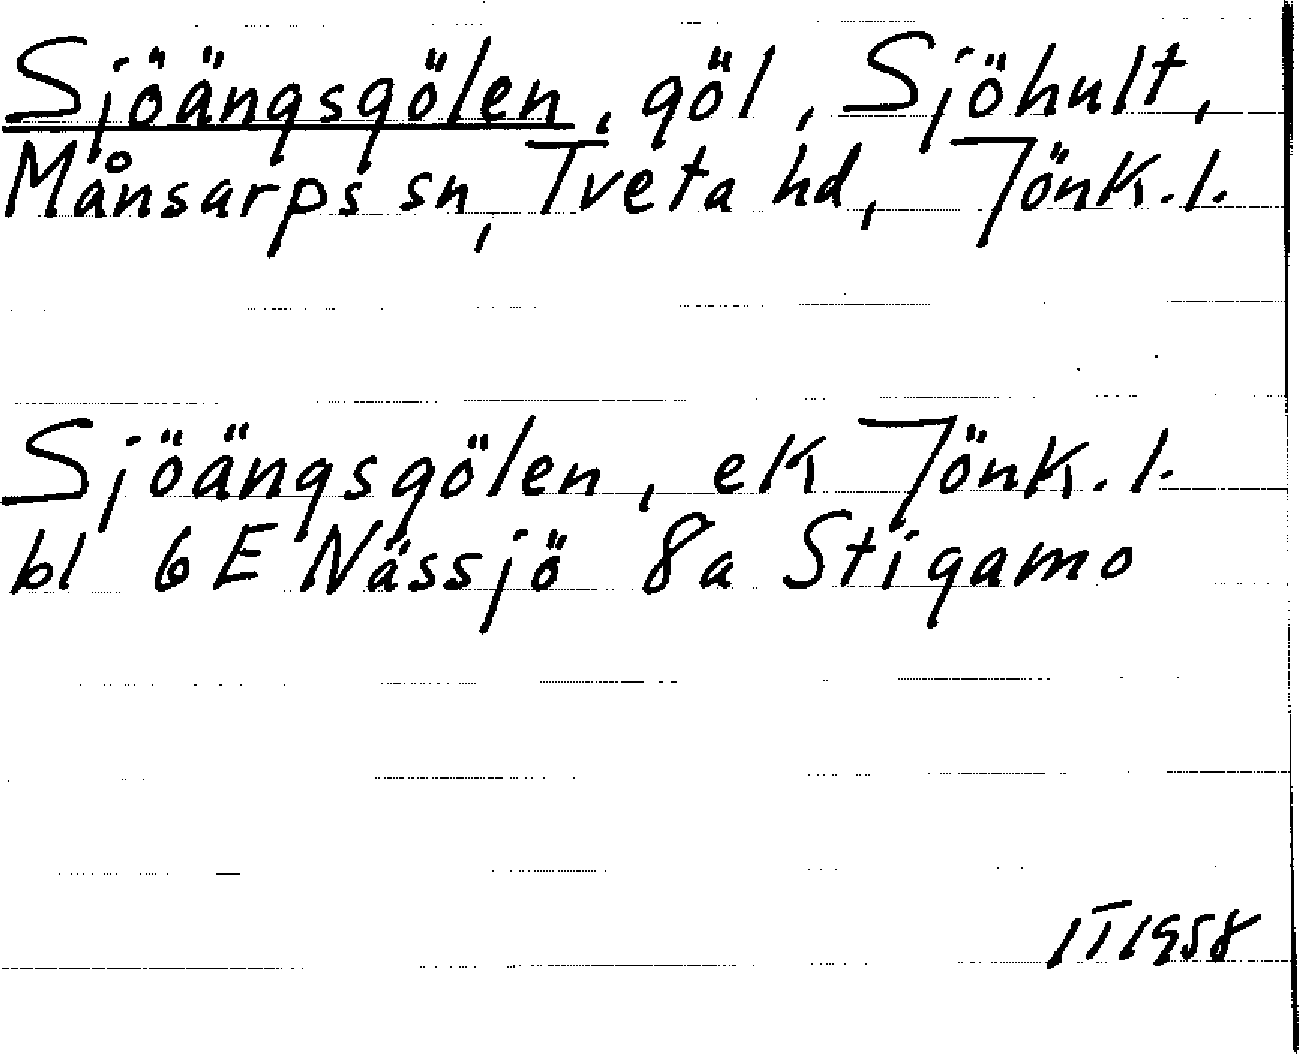 Sjöängsgölen, göl, Sjöhult,
Månsarps sn, Tveta hd, Jönk.l.
Sjöängsgölen, ek Jönk.l.
bl 6E Nässjö 8a Stigamo
IT1958